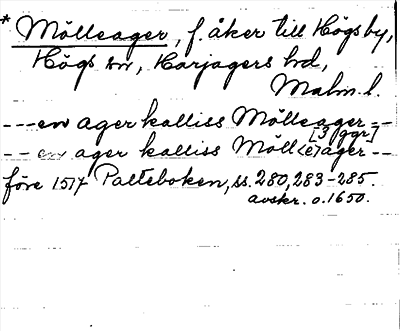 * Mölleager, f. åker till Högsby,
Högs sn, Harjagers hd,
Malm. l.
---en ager kalliss Mölleager--
[3 ggr]
-- en ager kalliss Möll<e>ager--
före 1517 Palteboken, ss. 280, 283-285.
avskr. o. 1650.